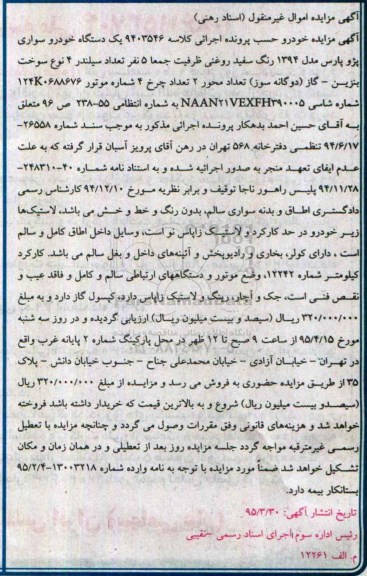 آگهی مزایده اموال غیرمنقول (اسناد رهنی)
آگهی مزایده خودرو حسب پرونده اجرائی کلاسه ۹۴۰۳۵۴۶ یک دستگاه خودرو سواری
پژو پارس مدل ۱۳۹۴ رنگ سفید روغنی ظرفیت جمعا ۵ نفر تعداد سیلندر ۴ نوع سوخت
بنزین - گاز (دوگانه سوز) تعداد محور ۲ تعداد چرخ ۴ شماره موتور ۱۲۴K۰۶۸۸۶۷۶
شماره شاسی NAAN۲۱VEXFH۳۹۰۰۰۵ به شماره انتظامی ۵۵-۲۳۸ ص ۹۶ متعلق
به آقای حسین احمد بدهکار پرونده اجرائی مذکور به موجب سند شماره ۲۶۵۵۸-
۹۴/۶/۱۷ تنظیمی دفترخانه ۵۶۸ تهران در رهن آقای پرویز آسبان قرار گرفته که به علت
عدم ایفای تعهد منجر به صدور اجرائیه شده و به استناد نامه شماره ۴۰-۲۴۸۳۱۰-
۹۴/۱۱/۲۸ پلیس راهور ناجا توقیف و برابر نظریه مورخ ۹۴/۱۲/۱۰ کارشناس رسمی
دادگستری اطاق و بدنه سواری سالم، بدون رنگ و خط و خش می باشد، لاستیک‌ها
زیر خودرو در حد کارکرد و لاستیک زاپاس نو است، وسایل داخل اطاق کامل و سالم
است ، دارای کولر، بخاری و رادیوپخش و آئینه‌های داخل و بغل سالم می باشد. کارکرد
کیلومتر شماره ۱۲۲۴۲، وضع موتور و دستگاههای ارتباطی سالم و کامل و فاقد عیب و
نقص فنی است، جک و آچار، رینگ و لاستیک زاپاس دارد، کپسول گاز دارد و به مبلغ
۳۲۰/۰۰۰/۰۰۰ ریال (سیصد و بیست میلیون ریال) ارزیابی گردیده و در روز سه شنبه
مورخ ۹۵/۴/۱۵ از ساعت ۹ صبح تا ۱۲ ظهر در محل پارکینگ شماره ۲ پایانه غرب واقع
در تهران - خیابان آزادی - خیابان محمدعلی جناح - جنوب خیابان دانش - پلاک
۳۵ از طریق مزایده حضوری به فروش می رسد و مزایده از مبلغ ۳۲۰/۰۰۰/۰۰۰ ریال
(سیصدو بیست میلیون ریال) شروع و به بالاترین قیمت که خریدار داشته باشد فروخته
خواهد شد و هزینه‌های قانونی وفق مقررات وصول می گردد و چنانچه مزایده با تعطیل
رسمی غیرمترقبه مواجه گردد جلسه مزایده روز بعد از تعطیلی و در همان زمان و مکان
تشکیل خواهد شد ضمناً مورد مزایده با توجه به نامه وارده شماره ۱۳۰۰۳۲۱۸-۹۵/۲/۴
بستانکار بیمه دارد.
تاریخ انتشار آگهی: ۹۵/۳/۳۰
رئیس اداره سوم اجرای اسناد رسمی
م. الف ۱۲۲۶۱